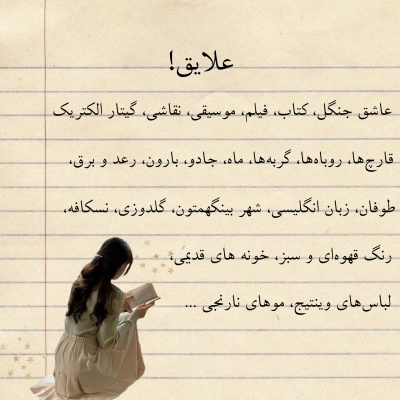 علایق!
عاشق جنگل، کتاب، فیلم، موسیقی، نقاشی، گیتار الکتریک
قارچ‌ها، روباه‌ها، گربه‌ها، ماه، جادو، بارون، رعد و برق،
طوفان، زبان انگلیسی، شهر بینگهمتون، گلدوزی، نسکافه،
رنگ قهوه‌ای و سبز، خونه های قدیمی،
لباس‌های وینتیج، موهای نارنجی ...